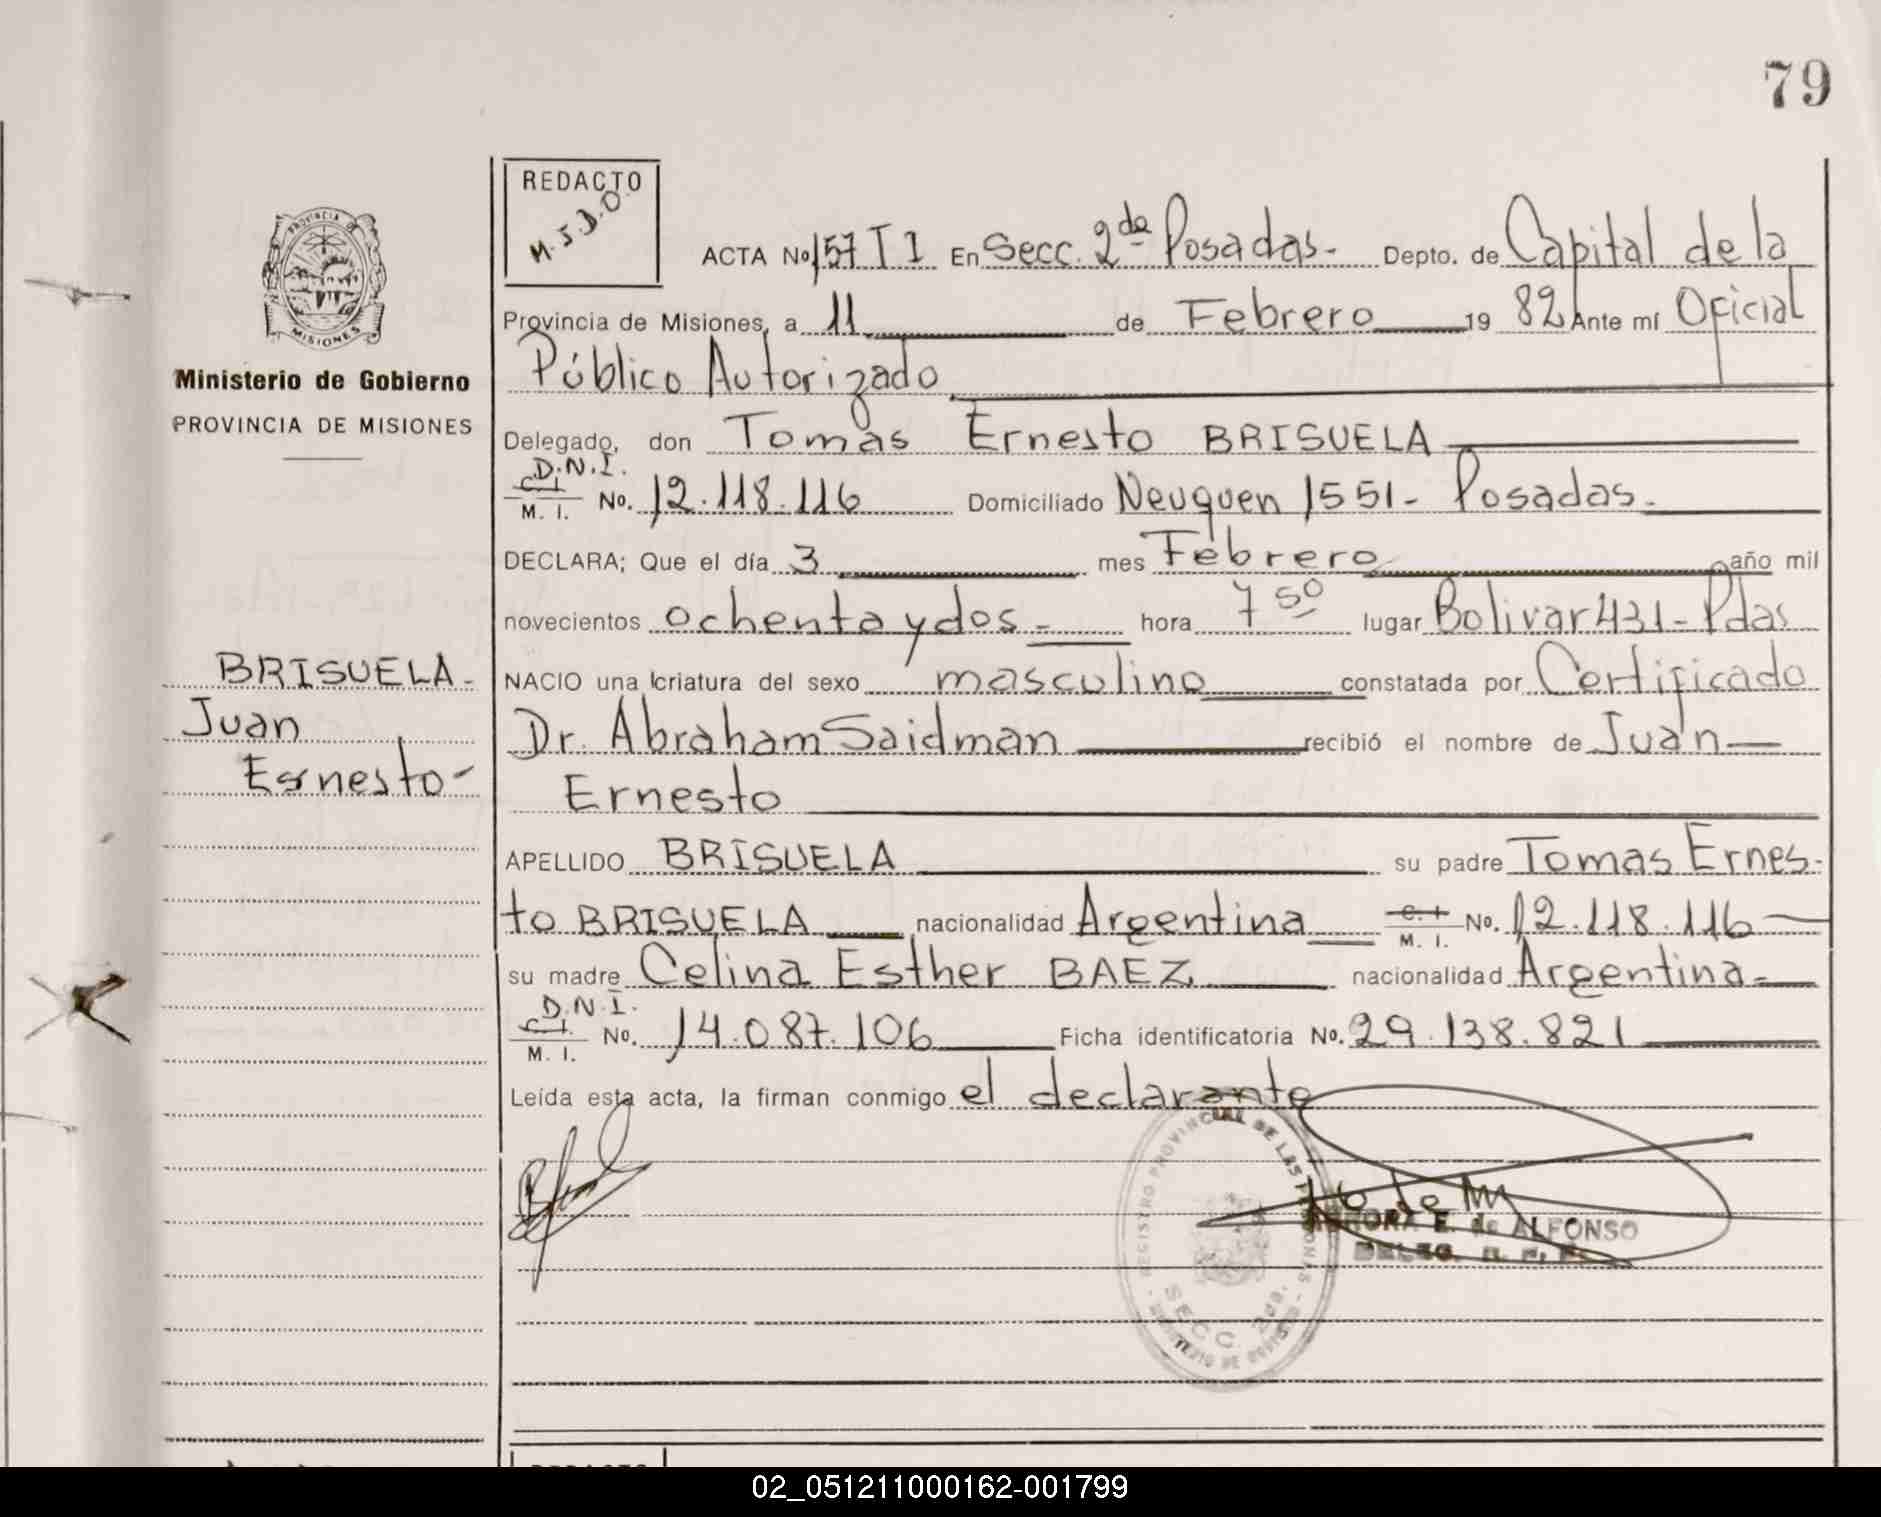 79
REDACTO
M.J.D.O.
PROVINCIA DE
MISIONES
Ministerio de Gobierno
PROVINCIA DE MISIONES
ACTA No. 157 T I En Secc. 2da Posadas- Depto. de Capital de la
Provincia de Misiones, a 11 de Febrero 19 82 Ante mí Oficial
Público Autorizado
Delegado, don Tomas Ernesto BRISUELA
D.N.I.
C. I.
M. I. No. 12.118.116 Domiciliado Neuquen 1551- Posadas.
DECLARA; Que el día 3 mes Febrero año mil
novecientos ochenta y dos- hora 7 50 lugar Bolivar 431- Pdas
NACIO una criatura del sexo masculino constatada por Certificado
Dr. Abraham Saidman recibió el nombre de Juan
Ernesto
APELLIDO BRISUELA su padre Tomas Ernes-
to BRISUELA nacionalidad Argentina C. I. M. I. No. 12.118.116
su madre Celina Esther BAEZ nacionalidad Argentina-
D.N.I.
C. I.
M. I. No. 14.087.106 Ficha identificatoria No. 29.138.821
Leída esta acta, la firman conmigo el declarante
BRISUELA-
Juan
Ernesto-
REGISTRO PROVINCIAL DE LAS PERSONAS
SECC. 2da.
E. de ALFONSO
DELEG.
REDACTO
02_051211000162-001799